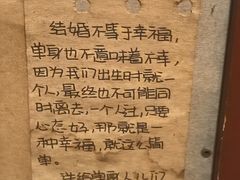 结婚不等于幸福，
单身也不意味着不幸，
因为我们出生时就一
个人，最终也不可能同
时离去，一个人过，只要
心态好，那就是一
种幸福，就这么简
单。